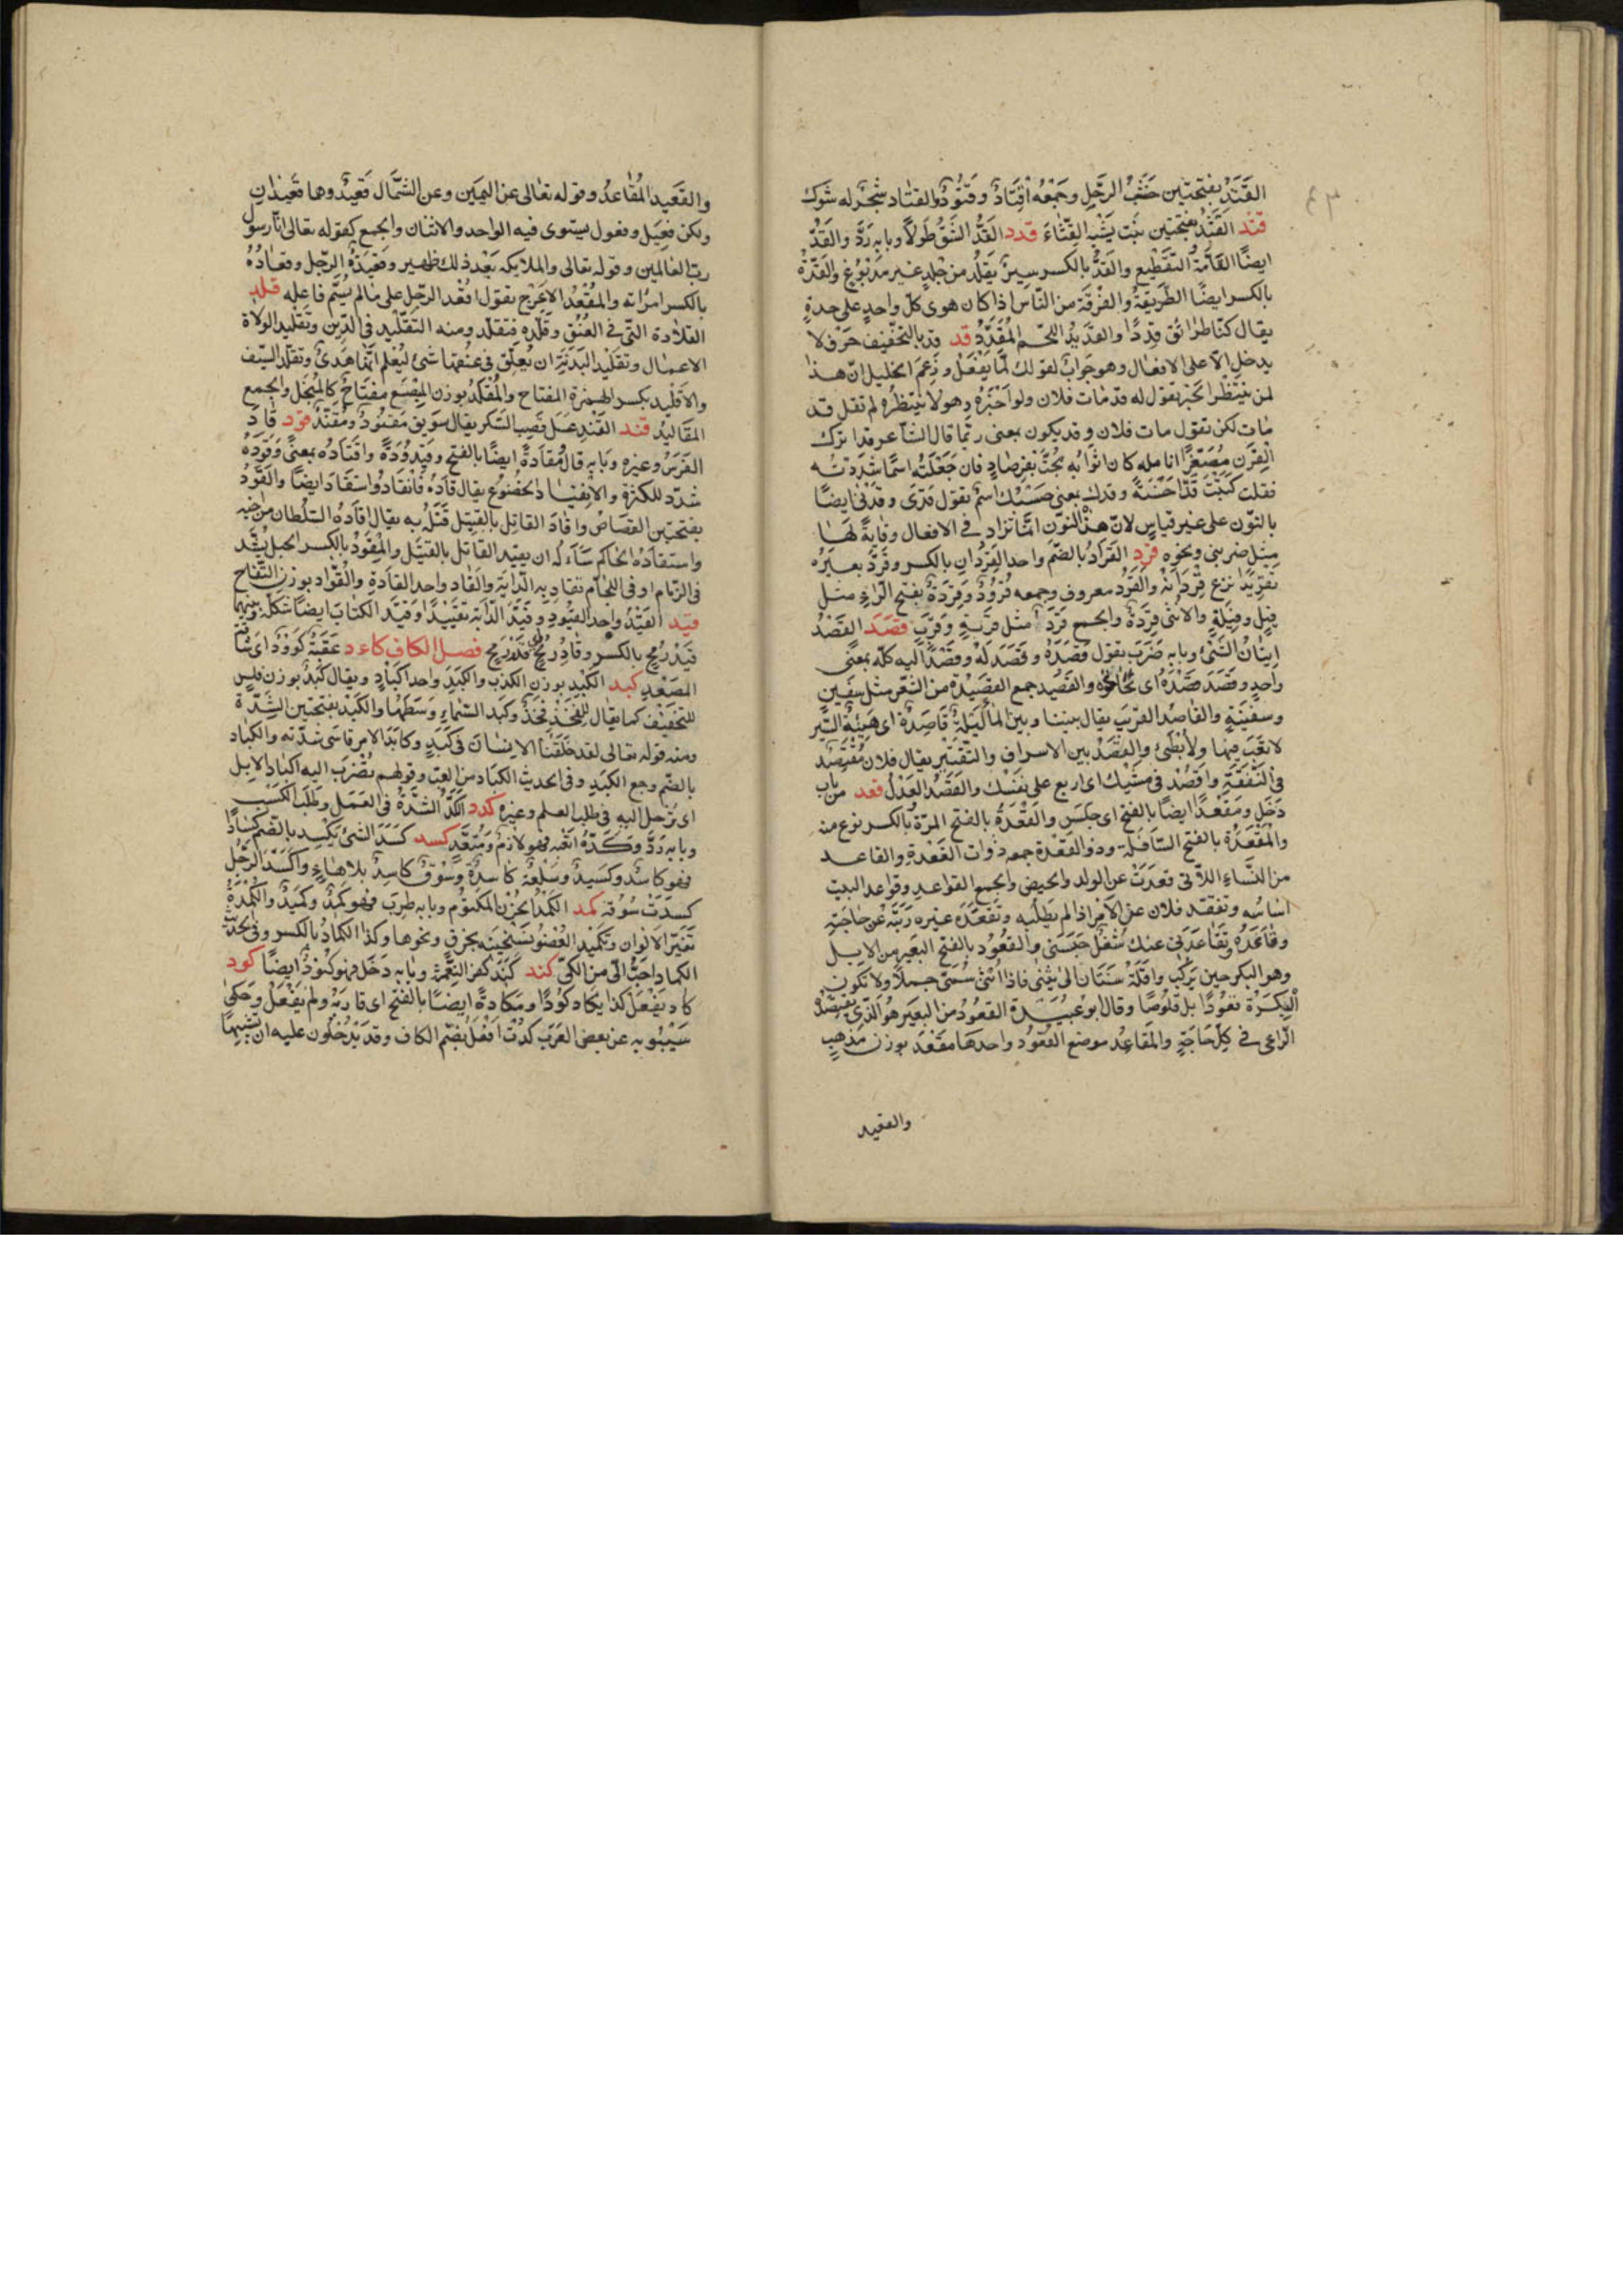 ٤٣
القَتَدُ بفتحتين خَشَبُ الرَّحْلِ وجَمْعُه اَقْتَادٌ وقُتُودٌ والقتاد شجر له شَوْك
قثد القَثَدُ بفتحتين نبت يشبه القِثَّاءَ قدد القَدُّ الشَقُّ طُولًا وبابه رَدَّ والقَدُّ
ايضًا القَامَةُ التَّقْطِيع والقِدُّ بالكسر سير يُقَدُّ من جلد غير مدبوغ والقِدَّةُ
بالكسر ايضًا الطَّرِيقَةُ والفِرْقَة من النّاس اذا كان هوى كلّ واحد على حدةٍ
يقال كنّا طرائق قِدَدًا والقَدِيدُ اللّحم المُقَدَّدُ قد قد بالتخفيف حَرْف لا
يدخل الّا على الافعال وهو جوابٌ لقولك لَمَّا يَفْعَلْ وزَعَمَ الخليل انّ هذا
لمن ينتظر الخبر تقول له قد مات فلان ولو اَخْبَرَهُ وهو لا ينتظرُه لم تقل قد
مات لكن تقول مات فلان وقد يكون بمعنى ربّما قال الشاعر قد اترك
القِرْن مُصْفَرًّا انامله كان اثوابه مُجَّتْ بفِرْصَادٍ فان جَعَلْتَه اسمًا شَدَّدْتَه
فقلت كَتَبْتَ قَدًّا حَسَنَةً وقدك بمعنى حَسْبُكَ اسمٌ تقول قَدِي وقَدْنِي ايضًا
بالنّون على غير قياس لانّ هذه النّون انّما تزاد في الافعال وِقايَةً لها
مثل ضربني ونحوه قرد القُرَادُ بالضّم واحد القِرْدَانِ بالكسر وقَرَّدَ بعيرَهُ
تقريدًا نزع قِرْدَانَهُ والقِرْدُ معروف وجمعه قُرُودٌ وقِرَدَةٌ بفتح الرّاء مثل
فِيلٍ وفِيَلَةٍ والانثى قِرْدَةٌ والجمع قِرَدٌ مثل قِرْبَةٍ وقِرَبٍ قصد القَصْدُ
اِتيانُ الشَّئ وبابه ضَرَبَ تقول قَصَدَهُ وقَصَدَ لَهُ وقَصَدَ اليه كلّه بمعنًى
واحدٍ وقَصَدَ قَصْدَهُ اى نَحَا نحوه والقَصِيد جمع القصيدة من الشّعر مثل سَفِينٍ
وسفينةٍ والقاصد القريب يقال بيننا وبين الماء ليلةٌ قَاصِدَةٌ اى هيّنة السَّير
لا تَعَبَ فيها ولا بُطْءَ والقَصْدُ بين الاسراف والتقتير يقال فلان مُقْتَصِدٌ
في النَّفَقَةِ واقْصِدْ في مَشْيِكَ اى اربع على نَفْسك والقَصْدُ العَدْلُ قعد من باب
دَخَلَ ومَقْعَدًا ايضًا بالفتح اى جَلَسَ والقَعْدَةُ بالفتح المرّةُ بالكسر نوع منه
والمَقْعَدَةُ بالفتح السَّافِلَة وذو القَعْدة جمعه ذوات القَعْدةِ والقاعد
من النساءِ اللّاتى قعَدَتْ عن الولد والحيض والجمع القواعد وقواعد البيت
اساسُه وتقعّد فلان عن الاَمْر اذا لم يَطْلُبه وتَقَعَّدَهُ غيره رَبَثَه عن حاجته
وقَاعَدَهُ وتَقَاعَدَنى عنك شُغْلٌ حَبَسَنى والقَعُود بالفتح البعير من الابل
وهو البكر حين يُرْكَبُ واقلّهُ سَنَتَان الى يُثنى فاذا اَثْنَى سُمِّىَ جملًا ولا تكون
البَكْرَةُ قعُودًا بل قلوصًا وقال ابو عُبَيْدة القَعُودُ من البَعِير هو الّذى يقتَعِدُهُ
الرّاعى في كلّ حاجَةٍ والمَقَاعِدُ موضع القُعُود واحدها مَقْعَد بوزن مَذْهَبٍ
والقعيد
والقَعِيد المُقَاعِدُ وقوله تعالى عن اليمين وعن الشِّمَال قعيد وهما قعيدان
ولكن فعيل وفعول يستوى فيه الواحد والاثنان والجمع كقوله تعالى انّا رسول
ربّ العالمين وقوله تعالى والملايكه بَعْدَ ذلك ظهير وقَعِيدَةُ الرّجل وقعادُهُ
بالكسر امرأته والمُقْعَدُ الاعرج تقول اُقْعِد الرّجل على ما لم يُسَمّ فاعله قلد
القلادة التّى في العُنُقِ وقَلَّدَه فتقلّد ومنه التّقْلِيد في الدّين وتقليد الولاة
الاعمال وتقليد البَدَنَة ان يُعَلَّق في عنقها شئ ليُعْلم انّها هَدْىٌ وتقلّد السّيف
والاِقْلِيد بكسر الهمزة المفتاح والمِقْلَدُ بوزن المِبْضَع مفتاح كالمنجل والجمع
المَقَاليدُ قند القَنْد عَسَل قَصَب السّكر يقال سويق مَقْنُودٌ ومُقَنَّدٌ قود قَادَ
الفَرَسَ وغيره وبابه قال ومَقَادَةً ايضًا بالفتح وقَيْدُودَةً واقْتَادَهُ بمعنًى وقَوَّدَهُ
شدّد للكثرة والانقياد الخُضُوع يقال قَادَهُ فَانْقَادَ واسْتَقَادَ ايضًا والقَوَدُ
بفتحتين القصاص واقادَ القاتِل بالقتيل قَتَلَهُ به يقال اقادَهُ السّلطان من اخيه
واستقادَه الحاكم سَأله ان يقيد القاتل بالقتيل والمِقْوَدُ بالكسر الحبل يُشَدّ
في الزّمام او في اللّجام تقاد به الدّابّة والقَاد واحد القادة والقُوَّاد بوزن التُّفَّاح
قيد القَيْدُ واحد القُيُود وقَيَّدَ الدّابّة تَقْيِيدًا وقَيَّد الكتاب ايضًا شكله وبينهما
قِيدُ رُمْحٍ بالكسر وقَادُ رُمْحٍ اى قدر رُمحٍ فصل الكاف كاءد عَقَبَةٌ كَؤُودٌ اى شاقّة
المَصْعَدِ كبد الكَبِد بوزن الكَذِبِ والكِبْدِ واحد اكبادٍ ويقال كَبْدٌ بوزن فَلْسٍ
للتّخفيف كما يقال للفَخِذ فَخْذٌ وكبد السّماءِ وَسَطُهَا والكَبَد بفتحتين الشدّة
ومنه قوله تعالى لقد خلقنا الانسان في كَبَدٍ وكابَدَ الامر قاسَى شدّته والكُبَاد
بالضّم وجع الكبد وفي الحديث الكباد من العَبّ وقولهم تُضْرَبُ اليه اكباد الابل
اى يُرْحل اليه في طلب العلم وغيره كدد الكَدُّ الشدّةُ في العَمَلِ وطَلَبُ الكَسْب
وبابه رَدَّ وكَدَّهُ اتعبه فهو لازمٌ ومُتَعَدٍّ كسد كَسَدَ الشئ يكسد بالضّم كسادًا
فهو كاسدٌ وكَسِيدٌ وسِلْعَةٌ كاسدة وسُوْقٌ كاسِدٌ بلاهاءٍ واكْسَدَ الرّجُل
كسدت سُوقُه كمد الكَمَدُ الحُزْن المكتوم وبابه طَرِبَ فهو كَمِدٌ وكَمِيدٌ والكُمْدَةُ
تَغَيُّر الاَلوان وتكميد العُضْو تَسْخِينه بخرقٍ ونحوها وكذا الكِمَادُ بالكسر وفي الحديث
الكماد احبُّ الىّ من الكىّ كند كَنَدَ كفر النِّعْمَة وبابه دَخَلَ فهو كَنُودٌ ايضًا كود
كاد يفعل كذا يكاد كَوْدًا ومكادةً ايضًا بالفتح اى قاربه ولم يفعل وحكى
سيبويه عن بعض العَرَب كُدْتُ اَفْعَلُ بضمّ الكاف وقد يُدْخلون عليه ان تشبيهًا